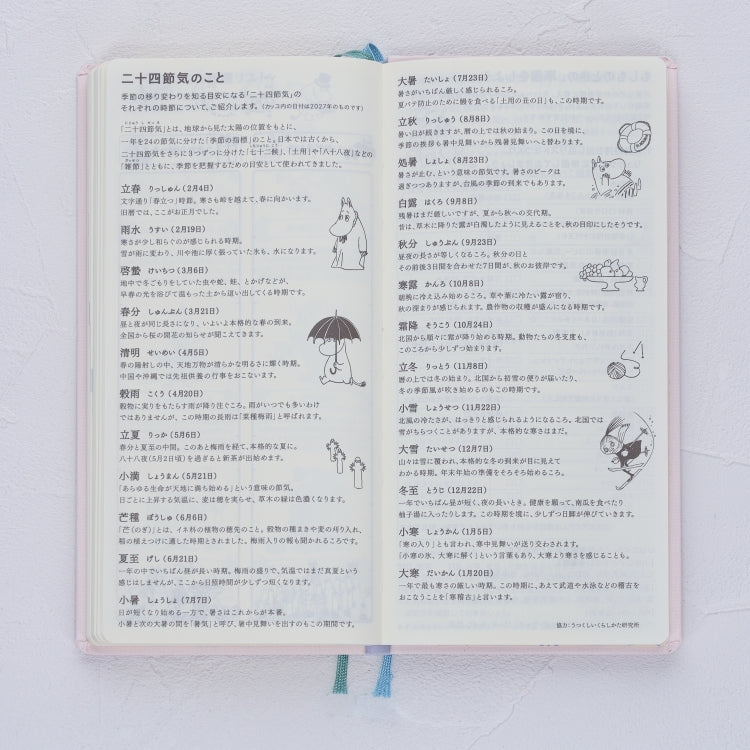 二十四節気のこと
季節の移り変わりを知る目安になる「二十四節気」の
それぞれの時節について、ご紹介します。（カッコ内の日付は2027年のものです）
「二十四節気」とは、地球から見た太陽の位置をもとに、
一年を24の節気に分けた「季節の指標」のこと。日本では古くから、
二十四節気をさらに3つずつに分けた「七十二候」、「土用」や「八十八夜」などの
「雑節」とともに、季節を把握するための目安として使われてきました。
立春 りっしゅん（2月4日）
文字通り「春立つ」時節。寒さも峠を越えて、春に向かいます。
旧暦では、ここがお正月でした。
雨水 うすい（2月19日）
寒さが少し和らぐのが感じられる時期。
雪が雨に変わり、川や池に厚く張っていた氷も、水になります。
啓蟄 けいちつ（3月6日）
地中で冬ごもりをしていた虫や蛇、蛙、とかげなどが、
早春の光を浴びて温もった土から這い出してくる時期です。
春分 しゅんぶん（3月21日）
昼と夜が同じ長さになり、いよいよ本格的な春の到来。
全国から桜の開花の知らせが聞こえてきます。
清明 せいめい（4月5日）
春の陽射しの中、天地万物が清らかな明るさに輝く時期。
中国や沖縄では先祖供養の行事をおこないます。
穀雨 こくう（4月20日）
穀物に実りをもたらす雨が降り注ぐころ。雨がいつでも多いわけ
ではありませんが、この時期の長雨は「菜種梅雨」と呼ばれます。
立夏 りっか（5月6日）
春分と夏至の中間。このあと梅雨を経て、本格的な夏に。
八十八夜（5月2日頃）を過ぎると新茶が出始めます。
小満 しょうまん（5月21日）
「あらゆる生命が天地に満ち始める」という意味の節気。
日ごとに上昇する気温に、麦は穂を実らせ、草木の緑は色濃くなります。
芒種 ぼうしゅ（6月6日）
「芒（のぎ）」とは、イネ科の植物の穂先のこと。穀物の種まきや麦の刈り入れ、
稲の植えつけに適した時期とされました。梅雨入りの報も聞かれるころです。
夏至 げし（6月21日）
一年の中でいちばん昼が長い時期。梅雨の盛りで、気温ではまだ真夏という
感じはしませんが、ここから日照時間が少しずつ短くなります。
小暑 しょうしょ（7月7日）
日が短くなり始める一方で、暑さはこれからが本番。
小暑と次の大暑の間を「暑気」と呼び、暑中見舞いを出すのもこの期間です。
大暑 たいしょ（7月23日）
暑さがいちばん厳しく感じられるころ。
夏バテ防止のために鰻を食べる「土用の丑の日」も、この時期です。
立秋 りっしゅう（8月8日）
暑い日が続きますが、暦の上では秋の始まり。この日を境に、
季節の挨拶も暑中見舞いから残暑見舞いへと替わります。
処暑 しょしょ（8月23日）
暑さが止む、という意味の節気です。暑さのピークは
過ぎつつありますが、台風の季節の到来でもあります。
白露 はくろ（9月8日）
残暑はまだ厳しいですが、夏から秋への交代期。
昔は、草木に降りた露が白濁したように見えることを、秋の目印にしたそうです。
秋分 しゅうぶん（9月23日）
昼夜の長さが等しくなるころ。秋分の日と
その前後3日間を合わせた7日間が、秋のお彼岸です。
寒露 かんろ（10月8日）
朝晩に冷え込み始めるころ。草や葉に冷たい露が宿り、
秋の深まりが感じられます。農作物の収穫が盛んになる時期です。
霜降 そうこう（10月24日）
北国から順々に霜が降り始める時期。動物たちの冬支度も、
このころから少しずつ始まります。
立冬 りっとう（11月8日）
暦の上では冬の始まり。北国から初雪の便りが届いたり、
冬の季節風が吹き始めるのもこの時期です。
小雪 しょうせつ（11月22日）
北風の冷たさが、はっきりと感じられるようになるころ。北国では
雪がちらつくことがありますが、本格的な寒さはまだ。
大雪 たいせつ（12月7日）
山々は雪に覆われ、本格的な冬の到来が目に見えて
わかる時期。年末年始の準備をそろそろ始めるころ。
冬至 とうじ（12月22日）
一年でいちばん昼が短く、夜の長いとき。健康を願って、南瓜を食べたり
柚子湯に入ったりします。この時期を境に、少しずつ日脚が伸びていきます。
小寒 しょうかん（1月5日）
「寒の入り」とも言われ、寒中見舞いが送り交わされます。
「小寒の氷、大寒に解く」という言葉もあり、大寒より寒さを感じることも。
大寒 だいかん（1月20日）
一年で最も寒さの厳しい時期。この時期に、あえて武道や水泳などの稽古を
おこなうことを「寒稽古」と言います。
協力：うつくしいくらしかた研究所